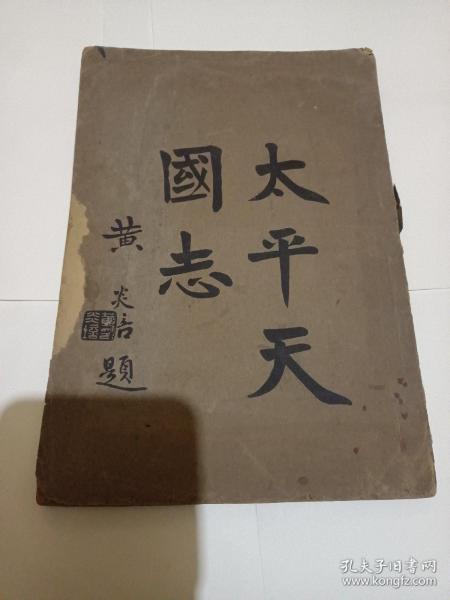 太平天
國志
黄炎培題
孔夫子旧书网
www.kongfz.com